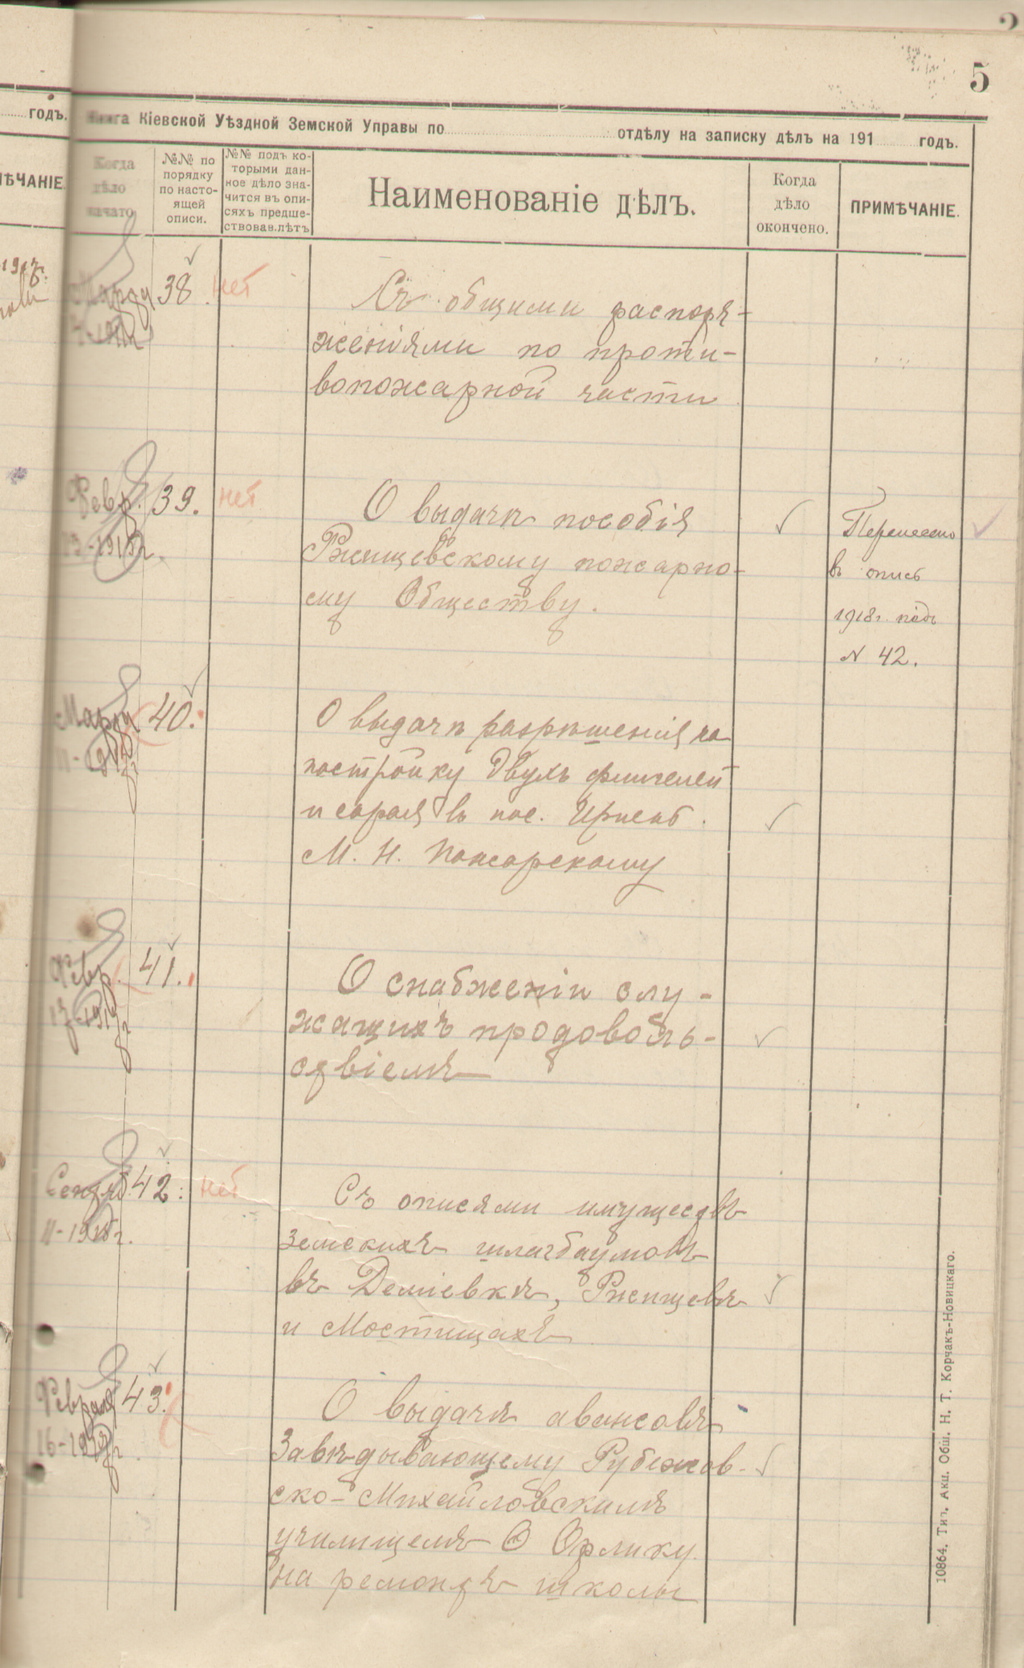 5
годъ.
Книга Кіевской Уѣздной Земской Управы по отдѣлу на записку дѣлъ на 191 годъ.
ѢЧАНІЕ.
Когда дѣло начато.
№№ по порядку по настоящей описи.
№№ подъ которыми данное дѣло значится въ описяхъ предшествовав.лѣтъ
Наименованіе дѣлъ.
Когда дѣло окончено.
ПРИМѢЧАНІЕ.
Марта
38
нет
Съ общими распоря-
женіями по проти-
вопожарной части
Февр.
39.
нет
О выдачѣ пособія
Ржищевскому пожарно-
му Обществу.
Перенесено
въ опись
1918г. подъ
N 42.
Марта
40.
О выдачѣ разрѣшенія на
постройку двухъ флигелей
и сарая въ пос.
М. Н. Пожарскому
Февр.
41.
О снабженіи слу-
жащихъ продоволь-
ствіемъ
Сентяб.
11-1918г.
42.
нет
Съ описями имуществъ
земскихъ шлагбаумовъ
въ Деміевкѣ, Ржищевѣ
и Мостищахъ
Февраля
16-1918г.
43.
О выдачѣ авансовъ
Завѣдывающему Рубежов-
ско-Михайловскимъ
училищемъ Ѳ Орлику
на ремонтъ школы
10864. Тип. Акц. Общ. Н. Т. Корчакъ-Новицкаго.